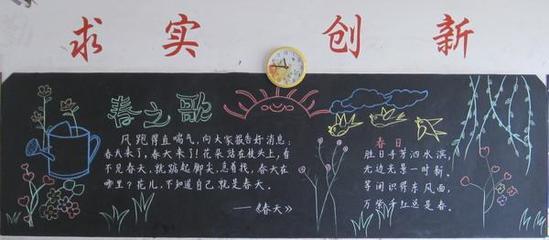 求实创新
春之歌
风跑得直喘气,向大家报告好消息:
春天来了,春天来了!花朵站在枝头上,看
不见春天,就踮起脚尖,急着找,春天在
哪里?花儿,不知道自己就是春天。
——《春天》
春日
胜日寻芳泗水滨,
无边光景一时新。
等闲识得东风面,
万紫千红总是春。